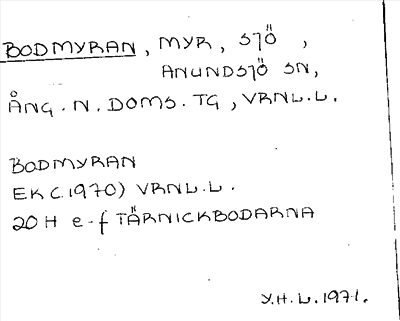 BODMYRAN, MYR, SJÖ,
ANUNDSJÖ SN,
ÅNG. N. DOMS. TG, VRNL.L.
BODMYRAN
EK (1970) VRNL.L.
20 H e-f TÄRNICKBODARNA
Y.H.L. 1971.